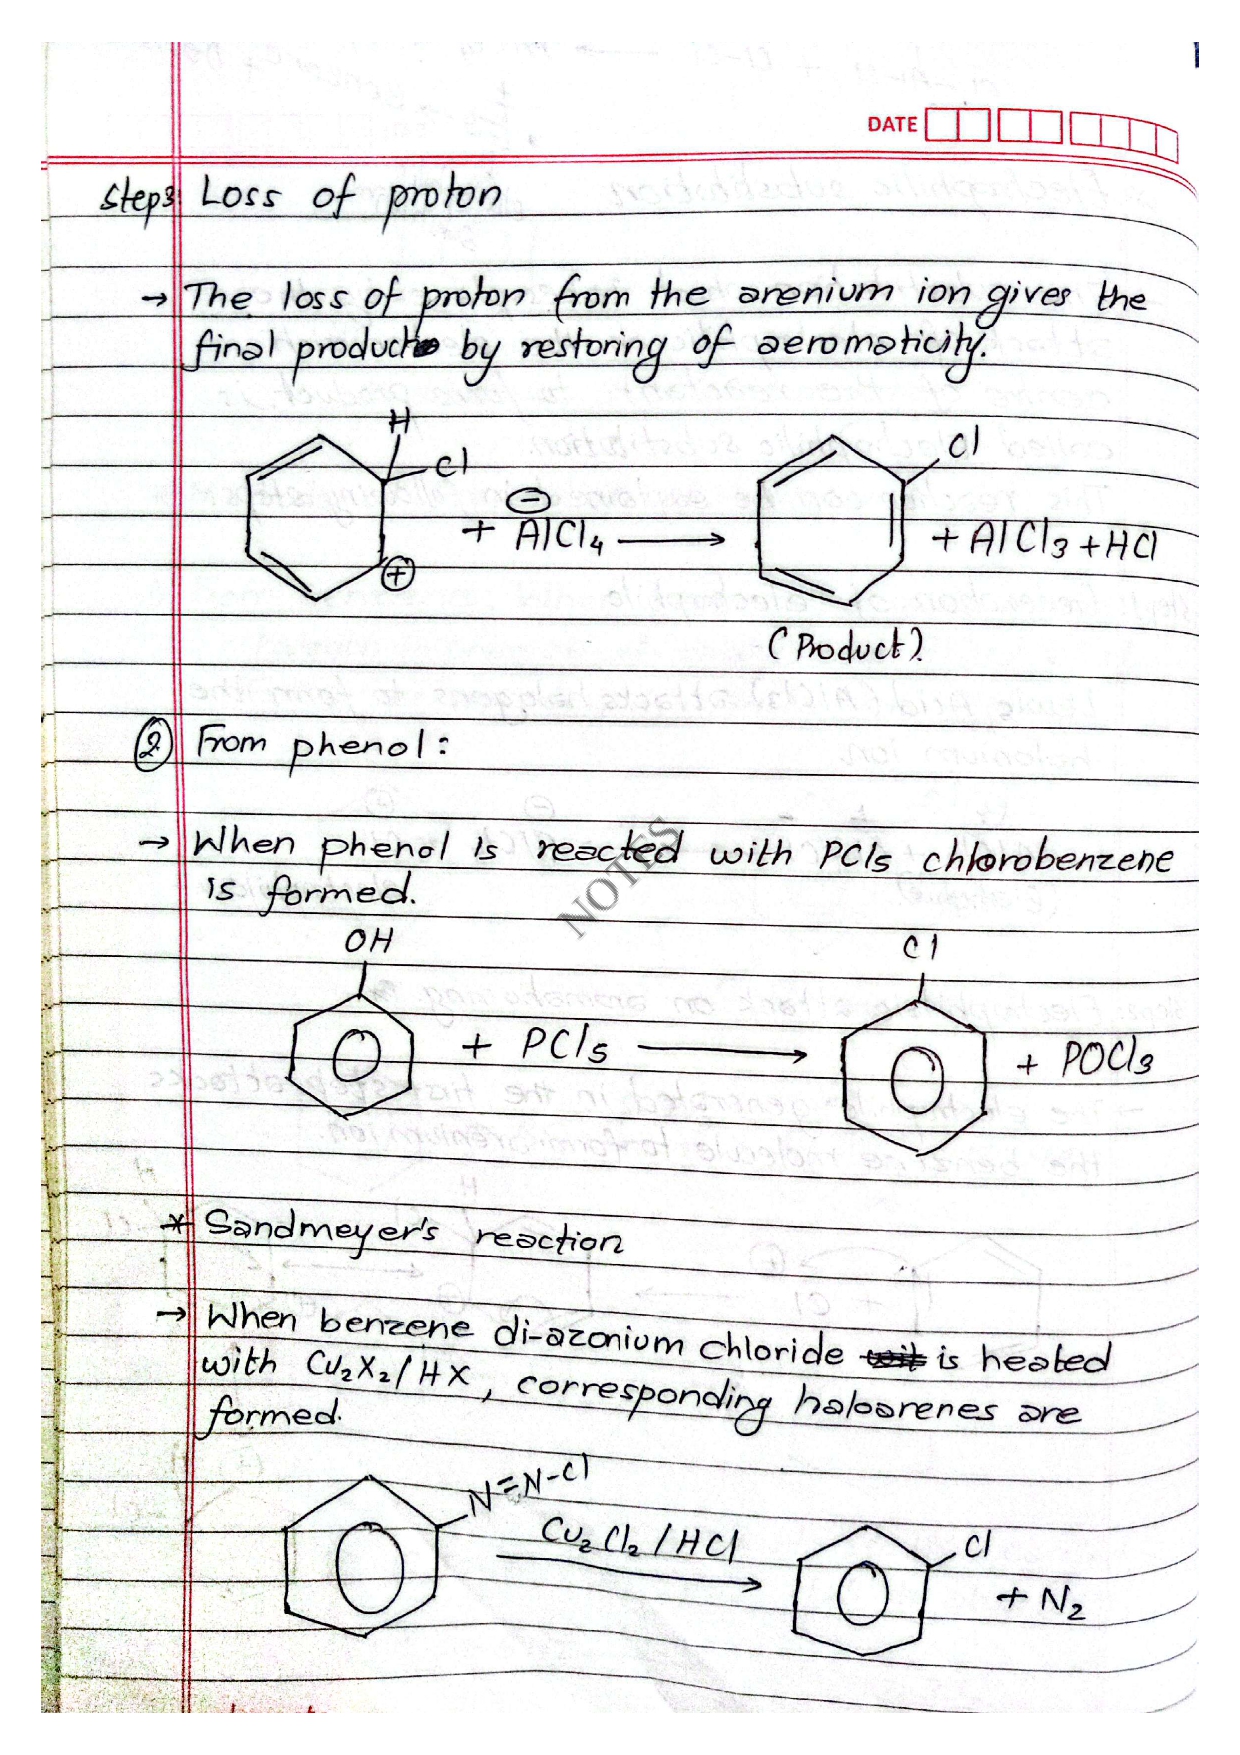 DATE
Step3 Loss of proton
→ The loss of proton from the arenium ion gives the
final product by restoring of aeromaticity.
H
Cl
⊖
+ AlCl4 ⟶
⊕
Cl
+ AlCl3 + HCl
(Product)
② From phenol:
→ When phenol is reacted with PCl5 chlorobenzene
is formed.
NOTES
OH
Cl
+ PCl5 ⟶
+ POCl3
* Sandmeyer's reaction
→ When benzene di-azonium chloride is heated
with Cu2X2/HX, corresponding haloarenes are
formed.
N=N-Cl
Cu2Cl2/HCl
Cl
+ N2